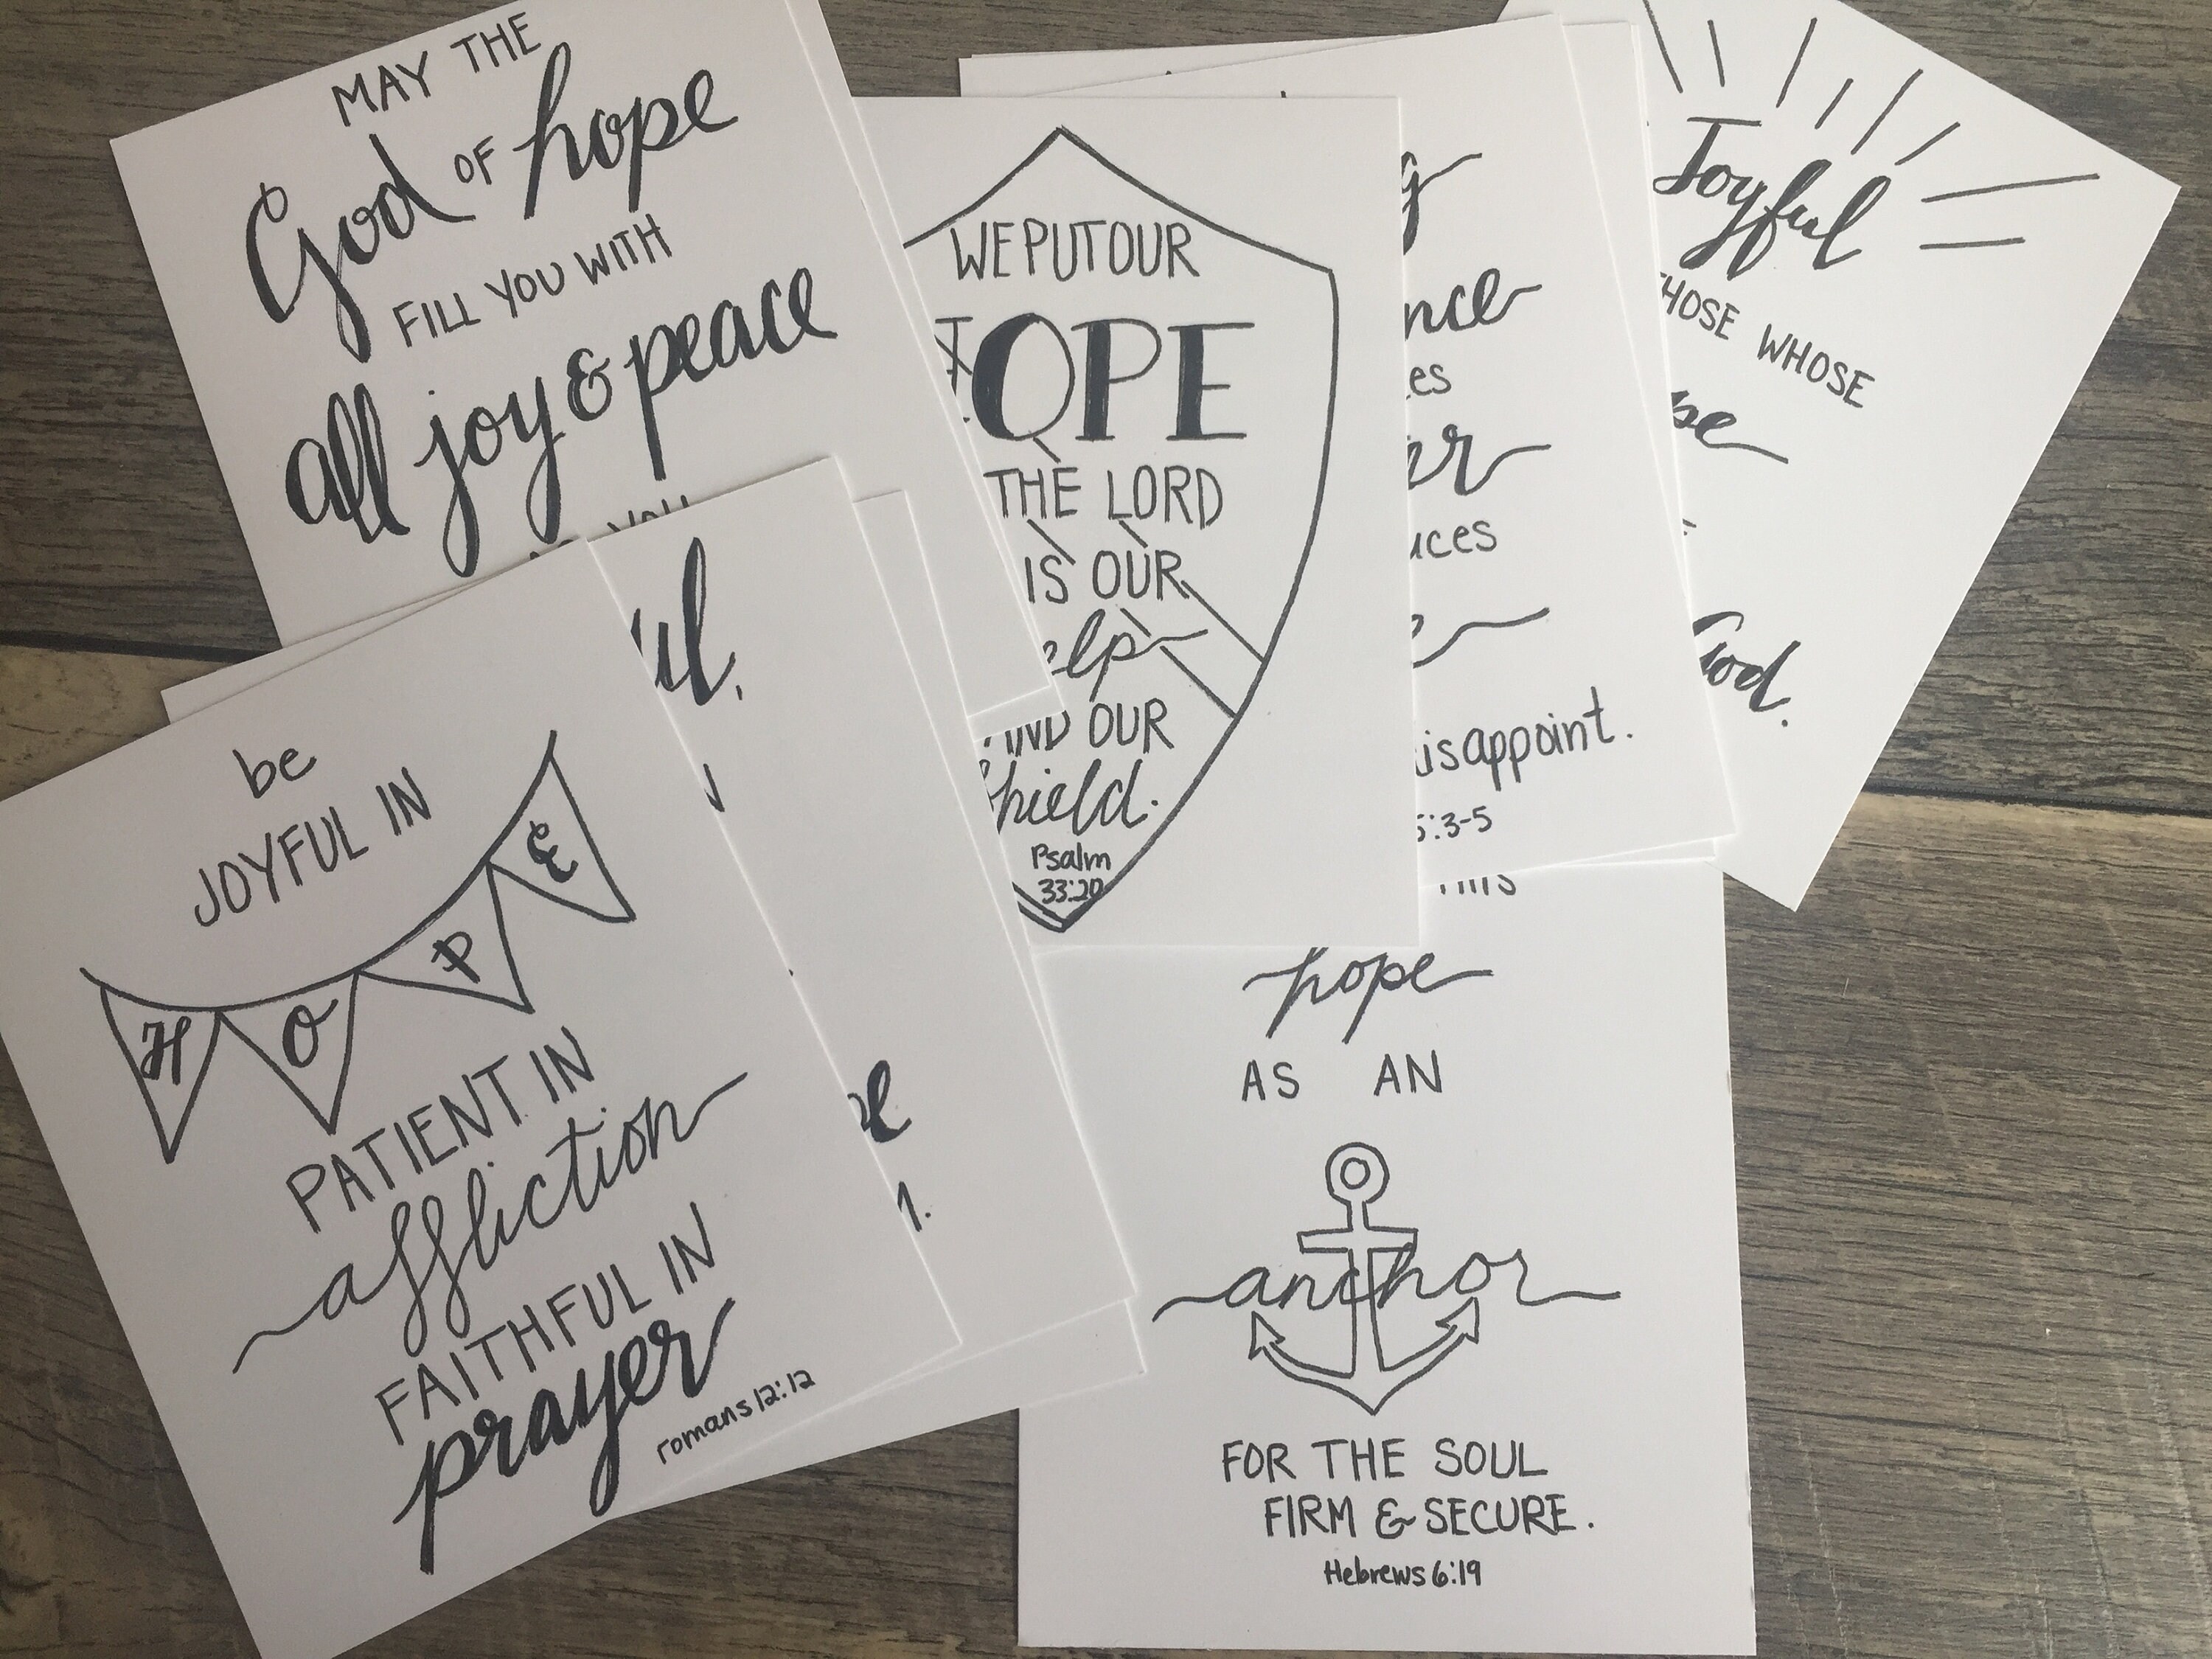 MAY THE
God OF hope
FILL YOU WITH
all joy & peace
YOU
WE PUT OUR
OPE
THE LORD
IS OUR
elp
AND OUR
hield.
Psalm
33:20
g
nce
es
er
uces
e
isappoint.
5:3-5
Joyful
HOSE WHOSE
pe
God.
be
JOYFUL IN
HOPE
PATIENT IN
affliction
FAITHFUL IN
prayer
romans 12:12
ul.
e
hope
AS AN
anchor
FOR THE SOUL
FIRM & SECURE.
Hebrews 6:19